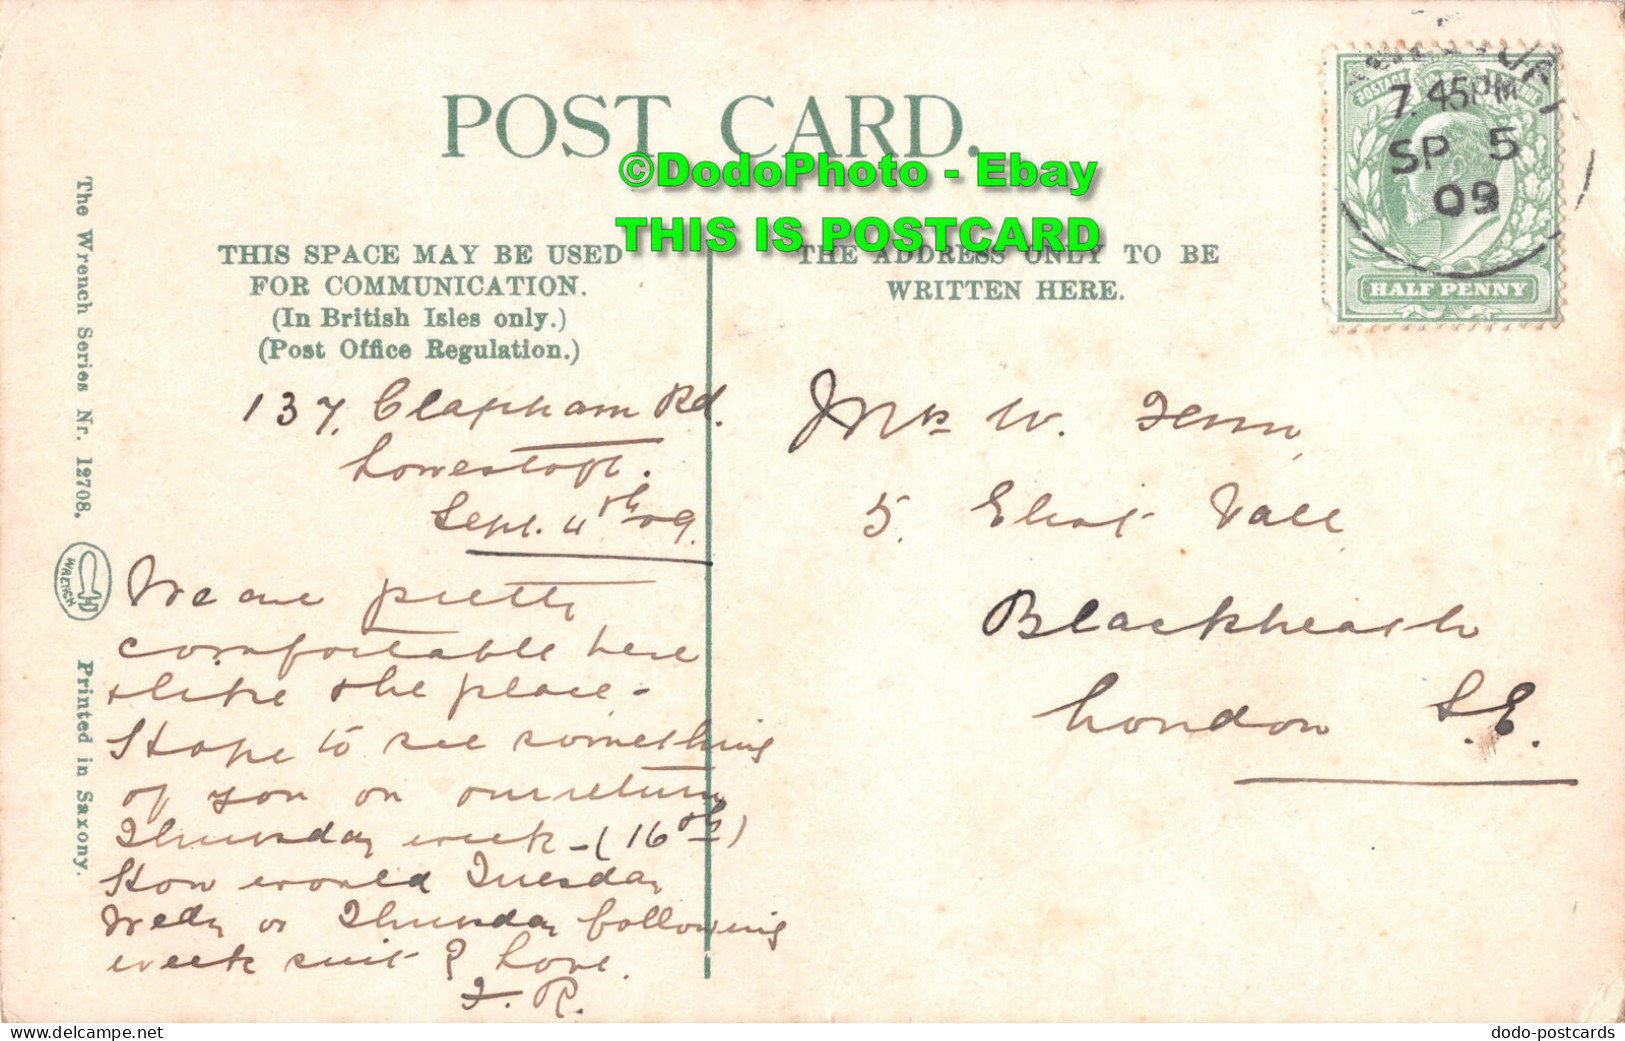 POST CARD.
©DodoPhoto - Ebay
THIS IS POSTCARD
THIS SPACE MAY BE USED
FOR COMMUNICATION.
(In British Isles only.)
(Post Office Regulation.)
THE ADDRESS ONLY TO BE
WRITTEN HERE.
POSTAGE
7.45PM
SP 5
09
HALF PENNY
The Wrench Series Nr. 12708.
WRENCH
Printed in Saxony.
137, Clapham Rd.
Lowestoft.
Sept. 4th 09.
We are pretty
comfortable here
& like the place -
Hope to see something
of you on our return
Thursday week - (16th)
How would Tuesday
Wedy or Thursday following
week suit? Love.
F. R.
Mrs W. Fenn,
5. Eliot Vale
Blackheath
London S.E.
dodo-postcards
www.delcampe.net